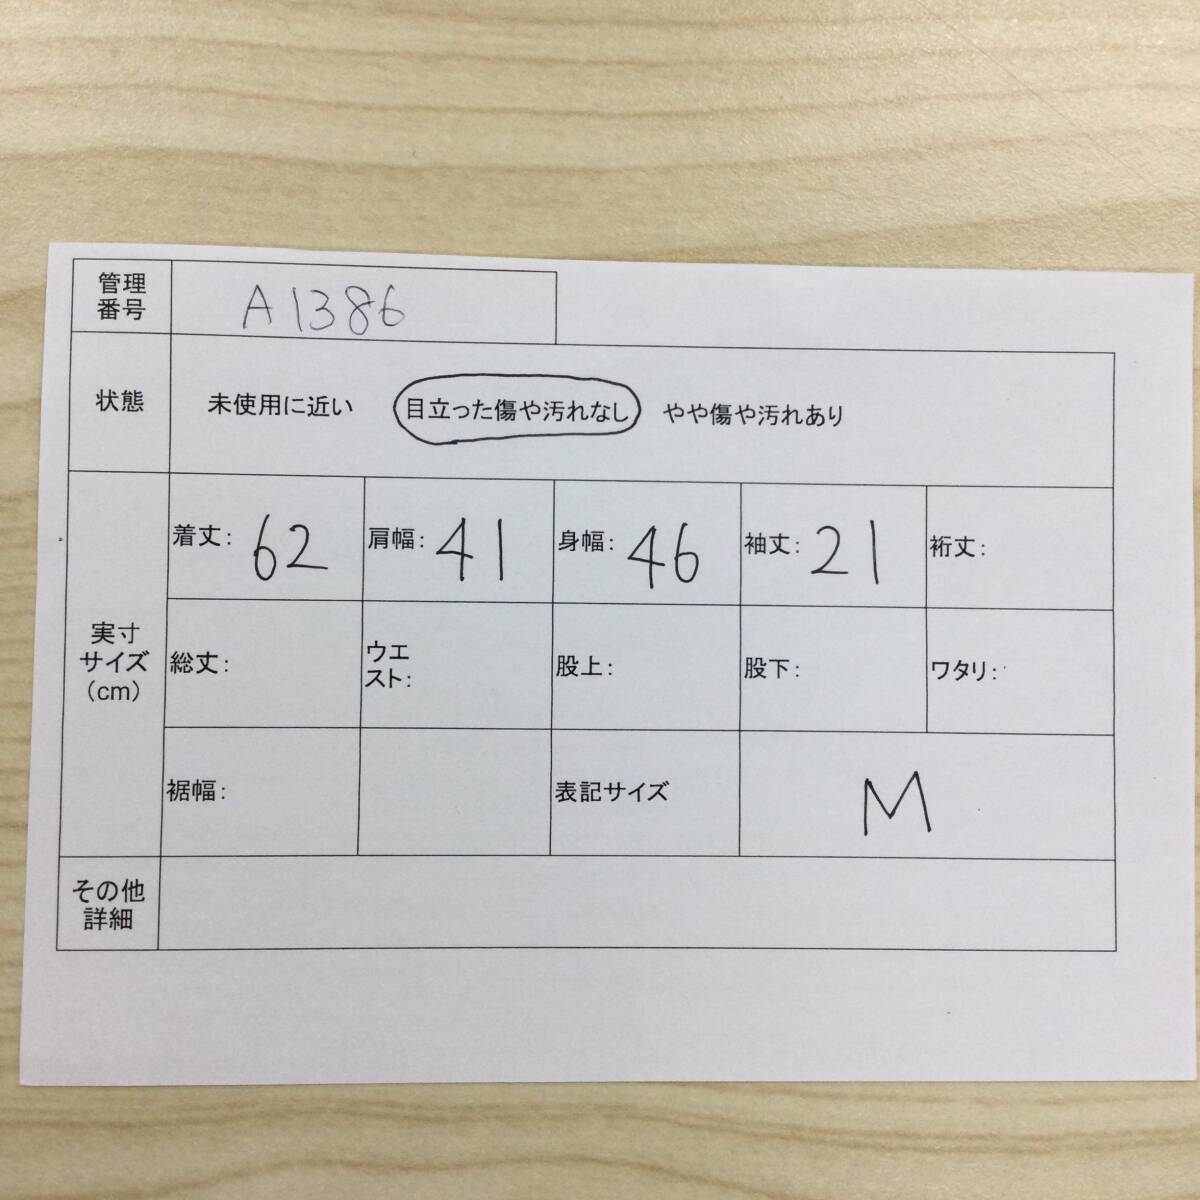 管理
番号
A1386
状態
未使用に近い 目立った傷や汚れなし やや傷や汚れあり
実寸
サイズ
(cm)
着丈: 62 肩幅: 41 身幅: 46 袖丈: 21 裄丈:
総丈: ウエ
スト: 股上: 股下: ワタリ:
裾幅: 表記サイズ M
その他
詳細